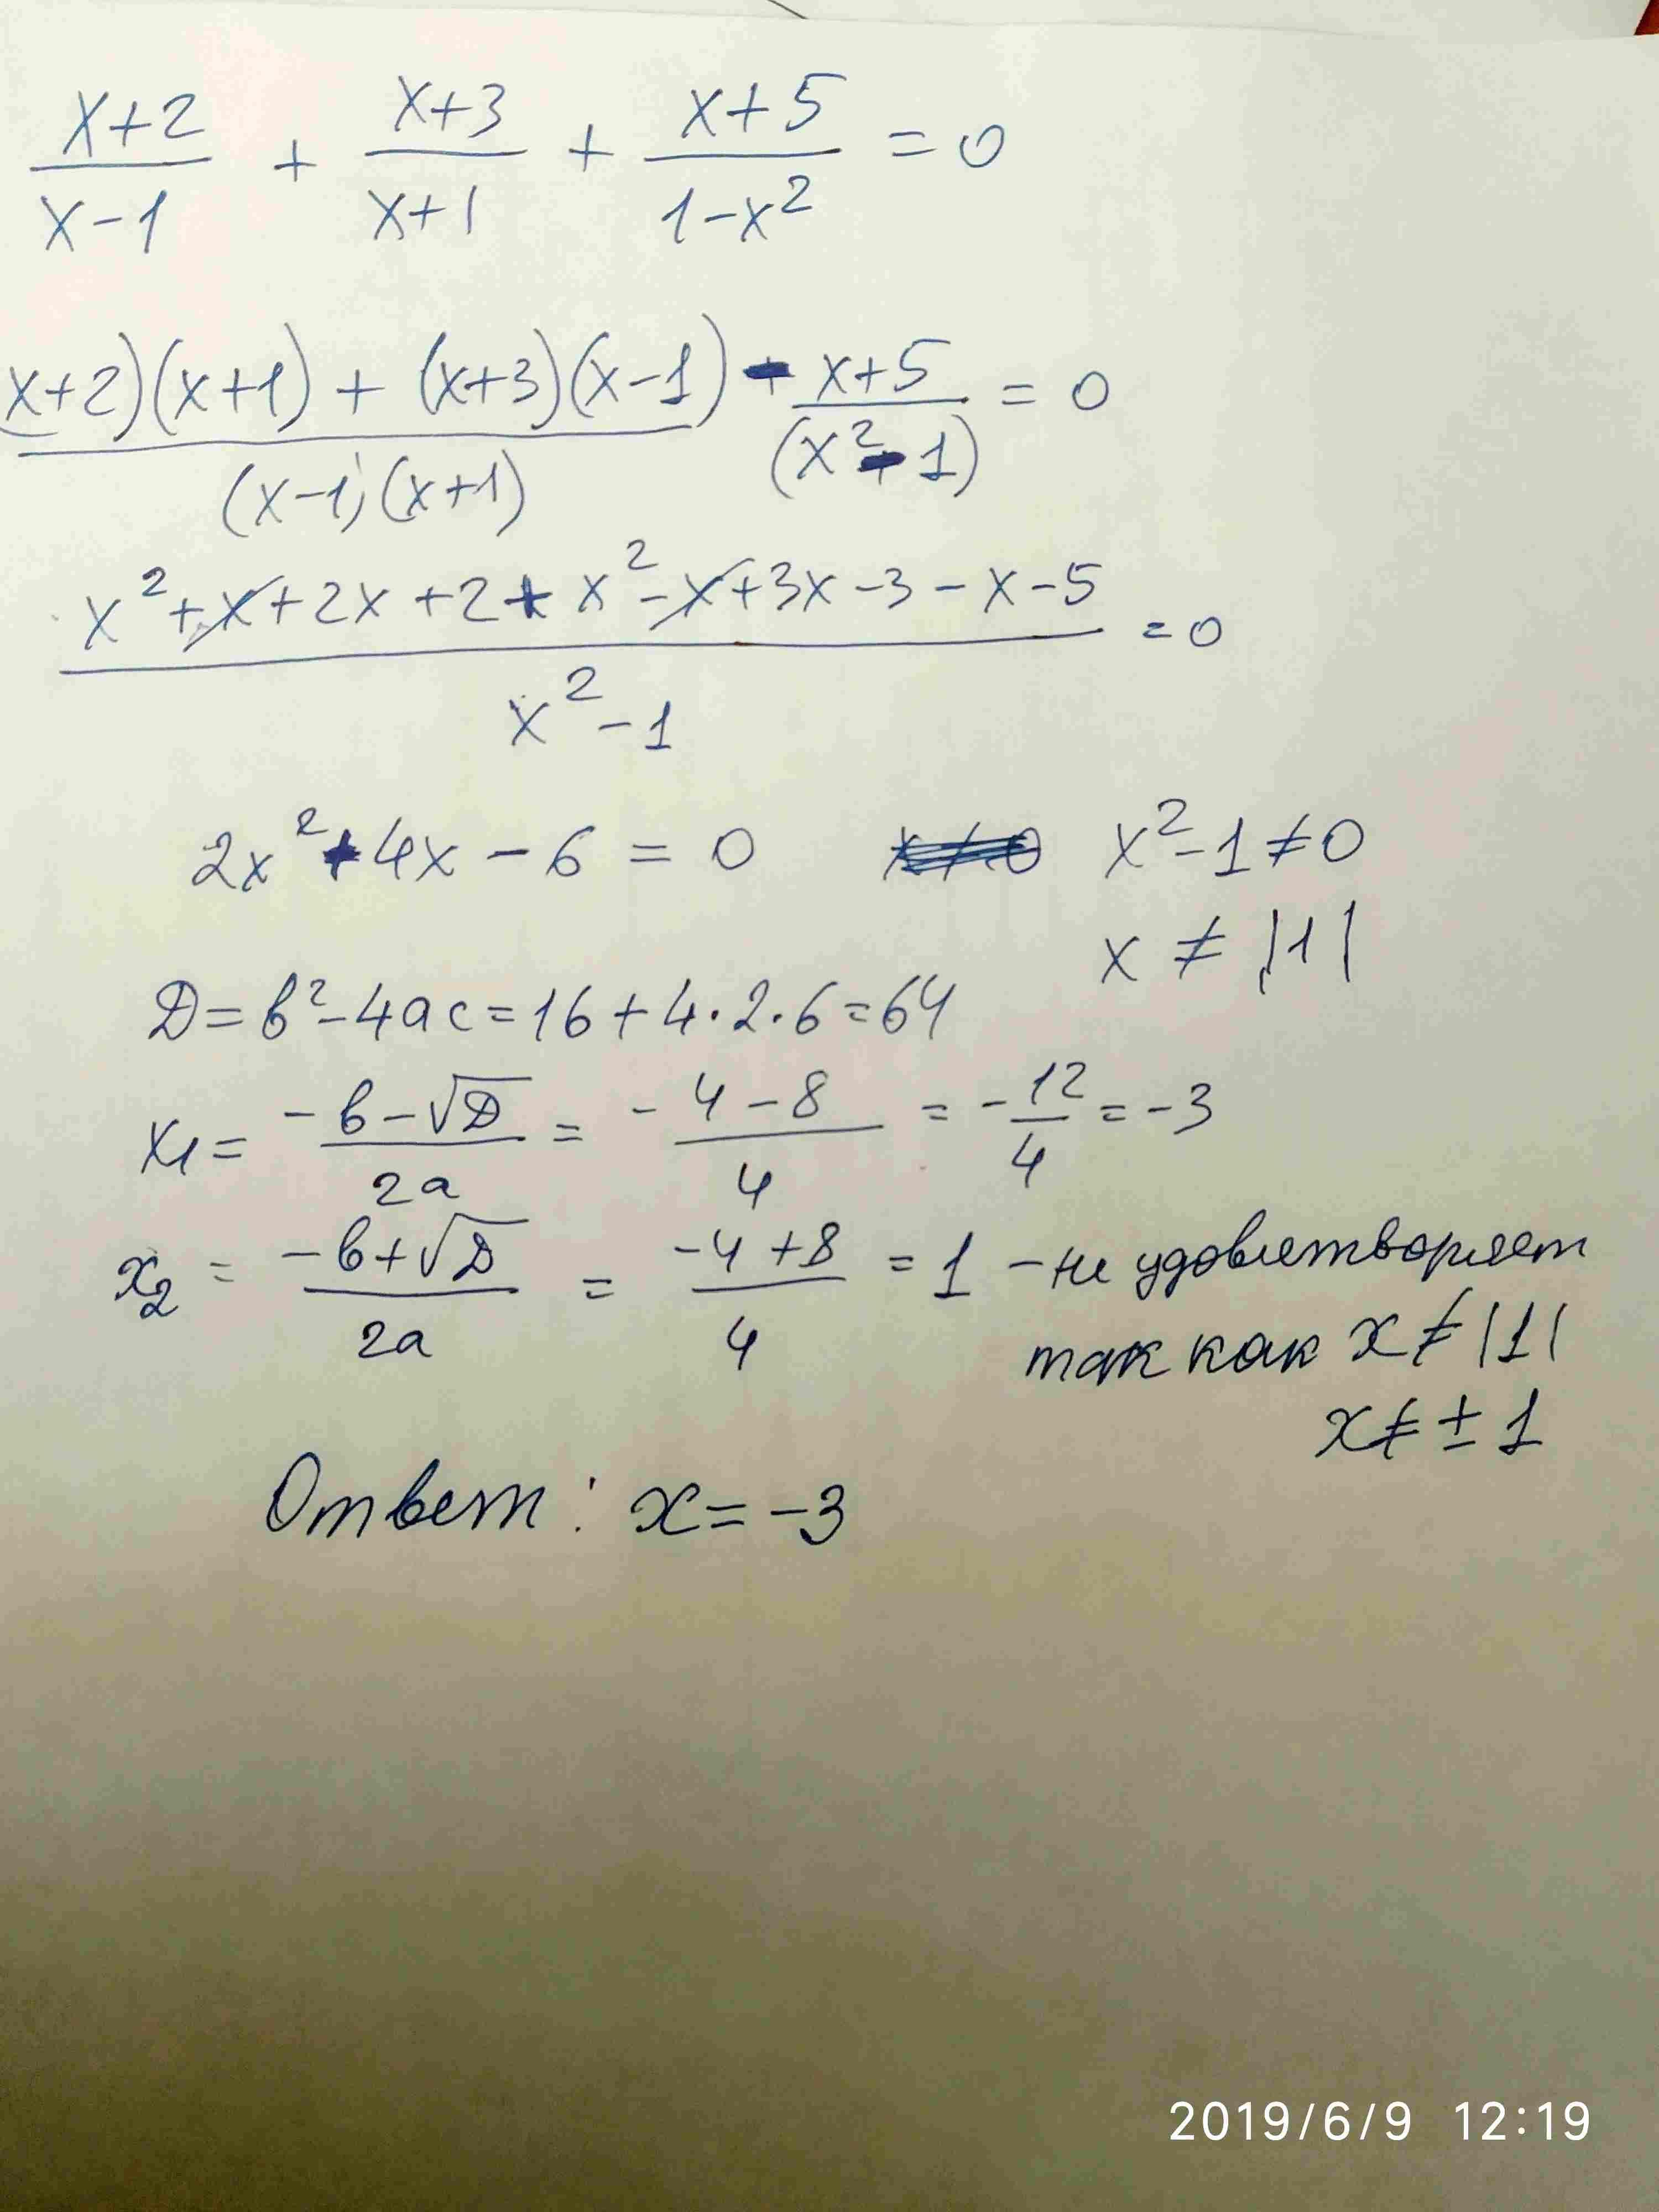 x+2/x-1 + x+3/x+1 + x+5/1-x² = 0
x+2)(x+1) + (x+3)(x-1)/(x-1)(x+1) - x+5/(x²-1) = 0
x²+x+2x+2+x²-x+3x-3-x-5/x²-1 = 0
2x²+4x-6=0 x²-1≠0
x ≠ |1|
D=b²-4ac=16+4·2·6=64
x1= -b-√D/2a = -4-8/4 = -12/4 = -3
x2 = -b+√D/2a = -4+8/4 = 1 - не удовлетворяет
так как x≠|1|
x≠±1
Ответ: x=-3
2019/6/9 12:19